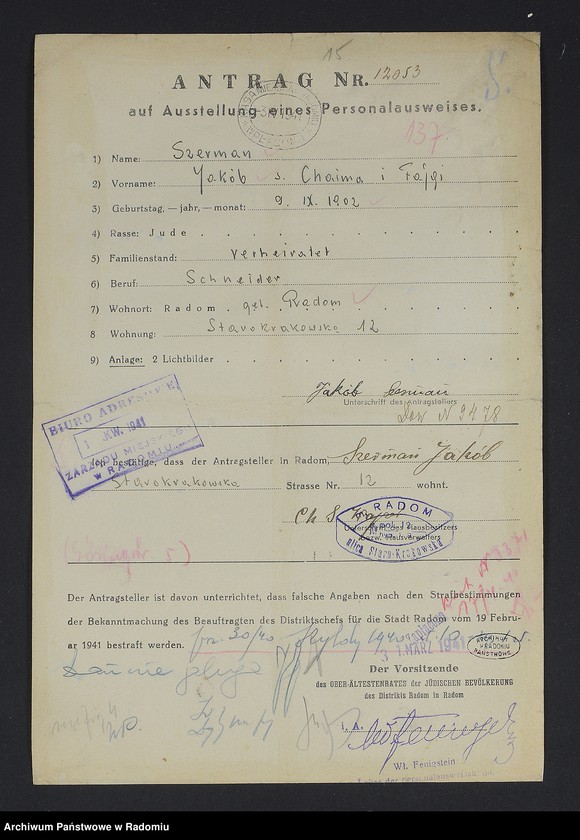 15
ANTRAG NR. 12053
auf Ausstellung eines Personalausweises.
137.
1) Name: Szerman
2) Vorname: Jakób s. Chaima i Fajgi
3) Geburtstag, — jahr, — monat: 9. IX. 1902
4) Rasse: Jude
5) Familienstand: verheiratet
6) Beruf: Schneider
7) Wohnort: Radom. geb. Radom
8 Wohnung: Starokrakowska 12
9) Anlage: 2 Lichtbilder
Jakób Szerman
Unterschrift des Antragstellers
Dow N 9478
BIURO ADRESOWE
1 KW. 1941
ZARZĄDU MIEJSKIEGO
W RADOMIU
Ich bestätige, dass der Antragsteller in Radom, Szerman Jakób
Starokrakowska Strasse Nr. 12 wohnt.
Ch. S.
RADOM
pol. 12
ulica Staro-Krakowska
Unterschrift des Hausbesitzers
bezw. Hausverwalters
Der Antragsteller ist davon unterrichtet, dass falsche Angaben nach den Strafbestimmungen
der Bekanntmachung des Beauftragten des Distriktschefs für die Stadt Radom vom 19 Febru-
ar 1941 bestraft werden.
3 1. MÄRZ 1941
ARCHIWUM
W RADOMIU
PAŃSTWOWE
Der Vorsitzende
des OBER-ÄLTESTENRATES der JÜDISCHEN BEVÖLKERUNG
des Distrikts Radom in Radom
i. A.
Wł. Fenigstein
Archiwum Państwowe w Radomiu